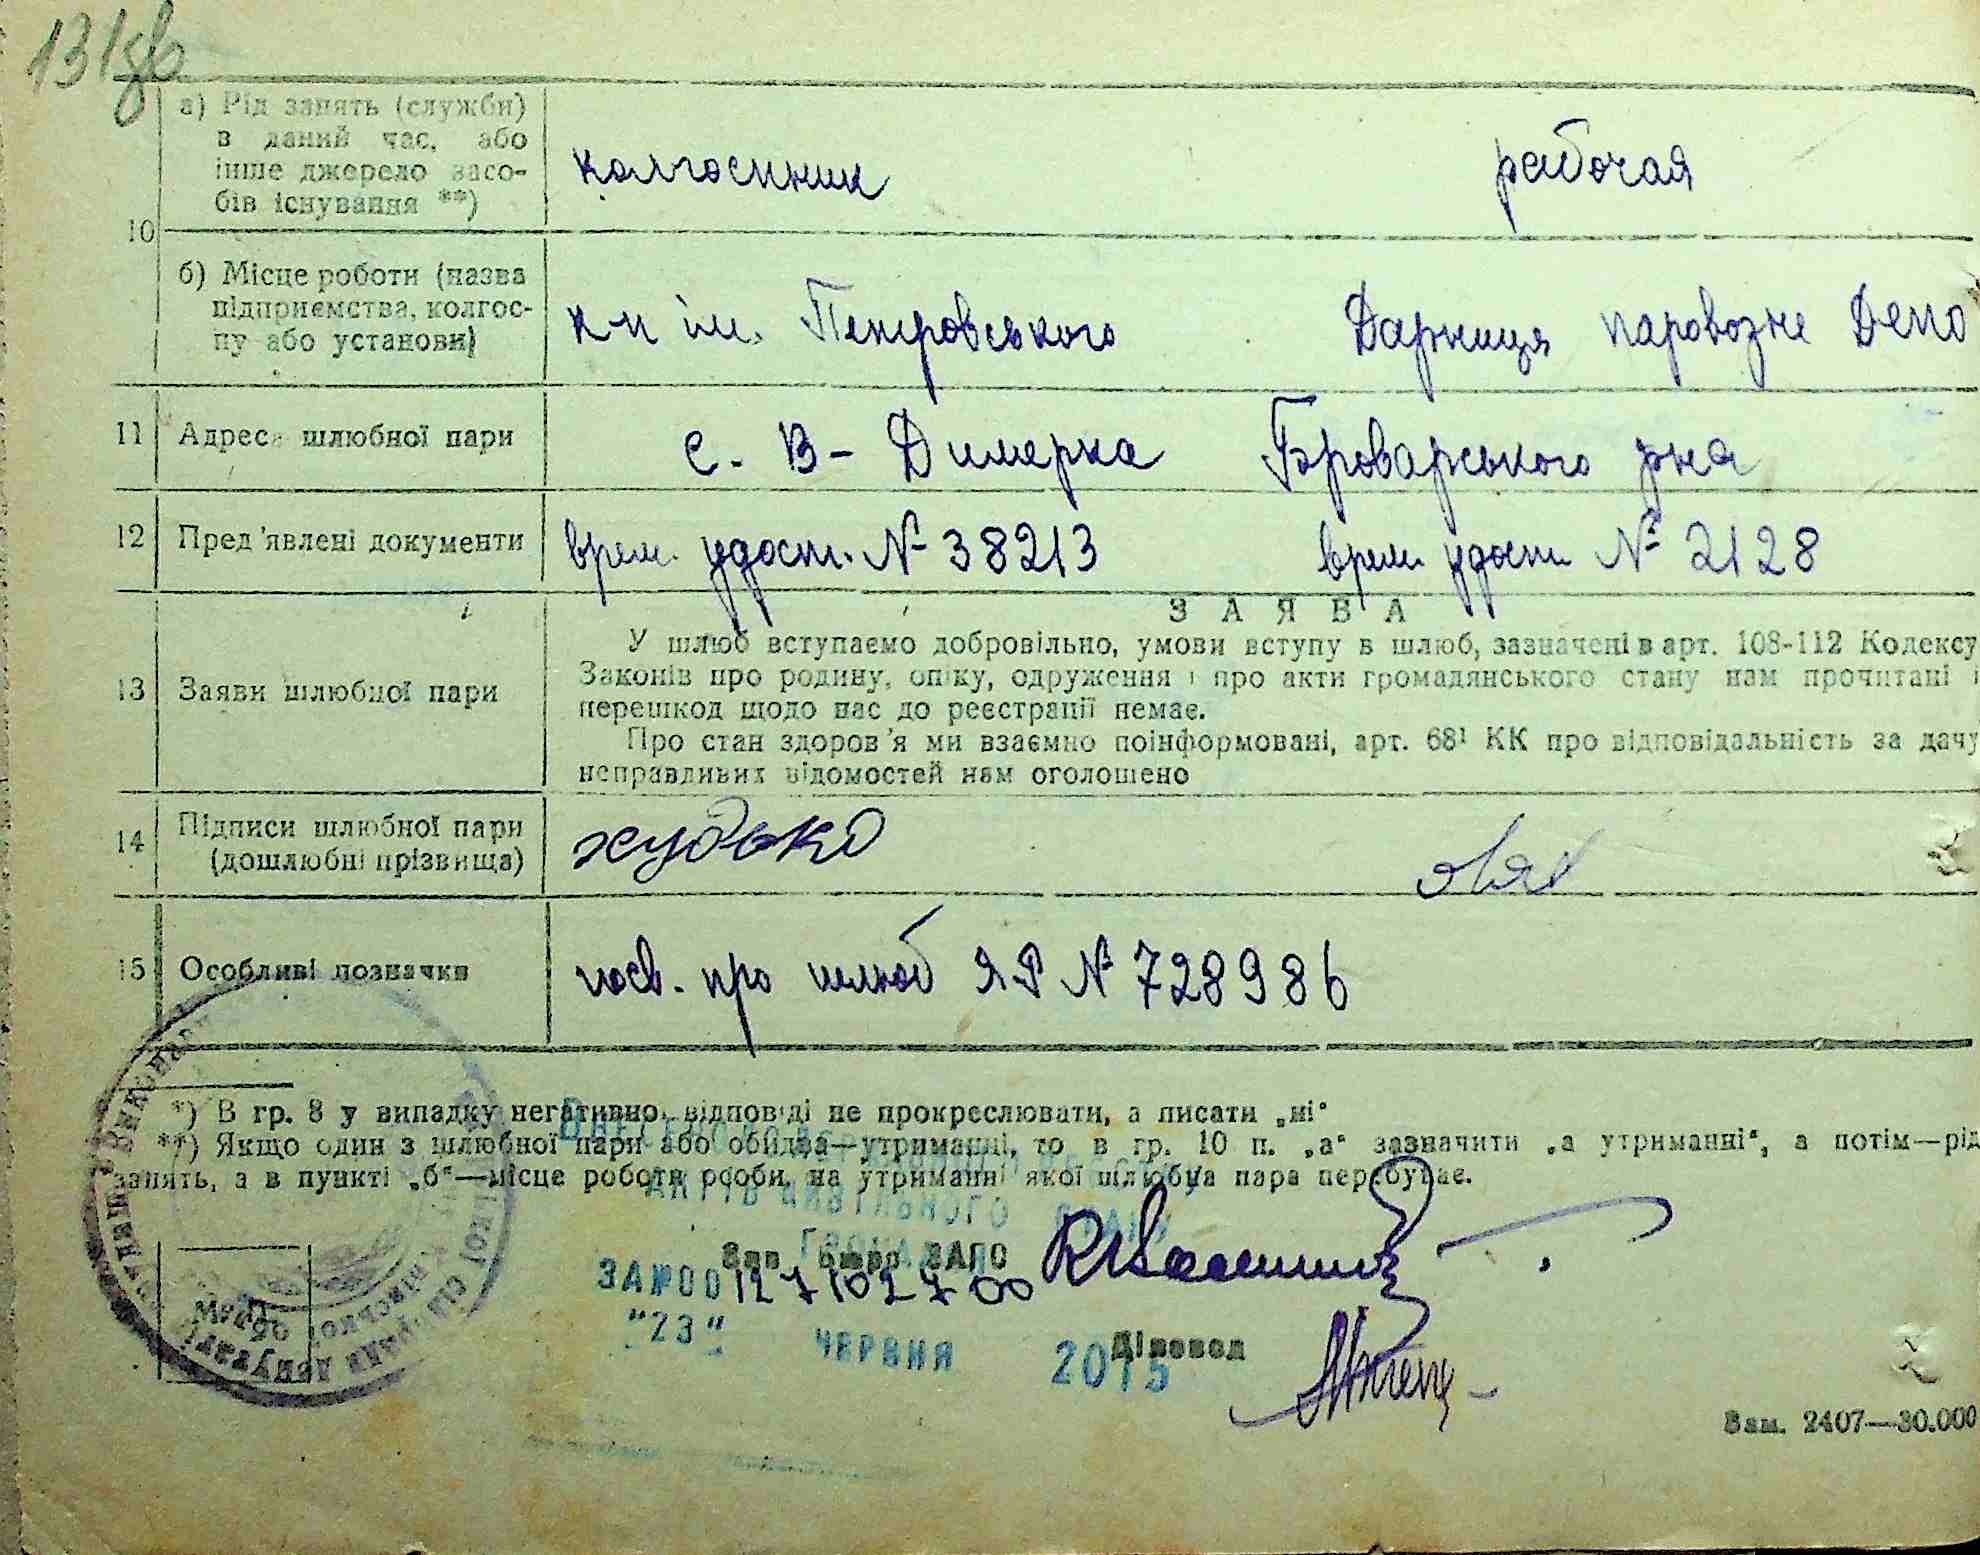 131зв
а) Рід занять (служби)
в даний час, або
інше джерело засо-
бів існування **)
колгоспник рабочая
10
б) Місце роботи (назва
підприємства, колгос-
пу або установи)
к-п ім. Петровського Дарниця паровозне Депо
11 Адреса шлюбної пари с. В-Димерка Броварського рна
12 Пред'явлені документи врем. удост. № 38213 врем. удост № 2128
ЗАЯВА
У шлюб вступаємо добровільно, умови вступу в шлюб, зазначені в арт. 108-112 Кодексу
Законів про родину, опіку, одруження і про акти громадянського стану нам прочитані і
перешкод щодо нас до реєстрації немає.
13 Заяви шлюбної пари
Про стан здоров'я ми взаємно поінформовані, арт. 68¹ КК про відповідальність за дачу
неправдивих відомостей нам оголошено
14 Підписи шлюбної пари
(дошлюбні прізвища)
худько
15 Особливі позначки посв. про шлюб ЯР № 728986
*) В гр. 8 у випадку негативної відповіді не прокреслювати, а писати „ні“
**) Якщо один з шлюбної пари або обидва—утриманні, то в гр. 10 п. „а“ зазначити „а утриманні“, а потім—рід
занять, а в пункті „б“—місце роботи особи, на утриманні якої шлюбна пара перебуває.
АКТІВ ЦИВІЛЬНОГО СТАНУ
ГРОМАДЯН
Зав. бюро ЗАГС
ЗА №00127102700
"23" ЧЕРВНЯ 2015
Діловод
М. П.
Зам. 2407—30.000